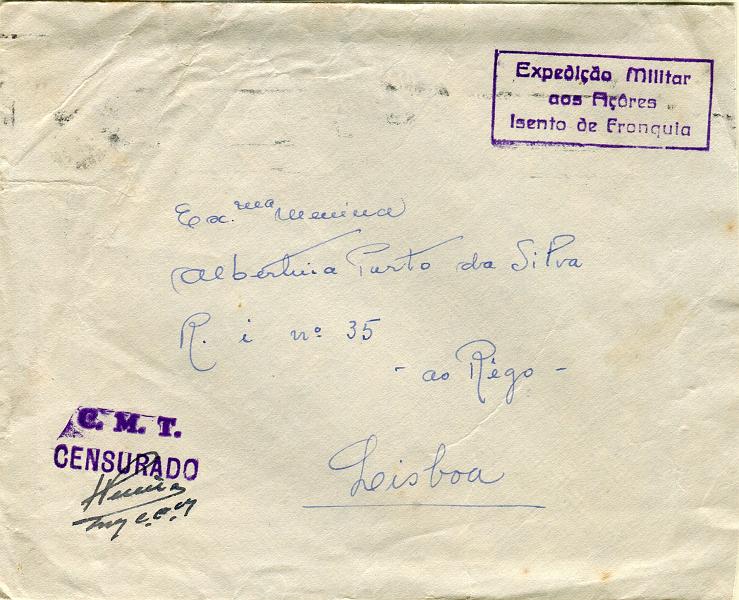 Expedição Militar
aos Açôres
Isento de Franquia
Ex.ma Menina
Albertina Porto da Silva
R. i nº 35
- ao Rêgo -
Lisboa
C. M. T.
CENSURADO